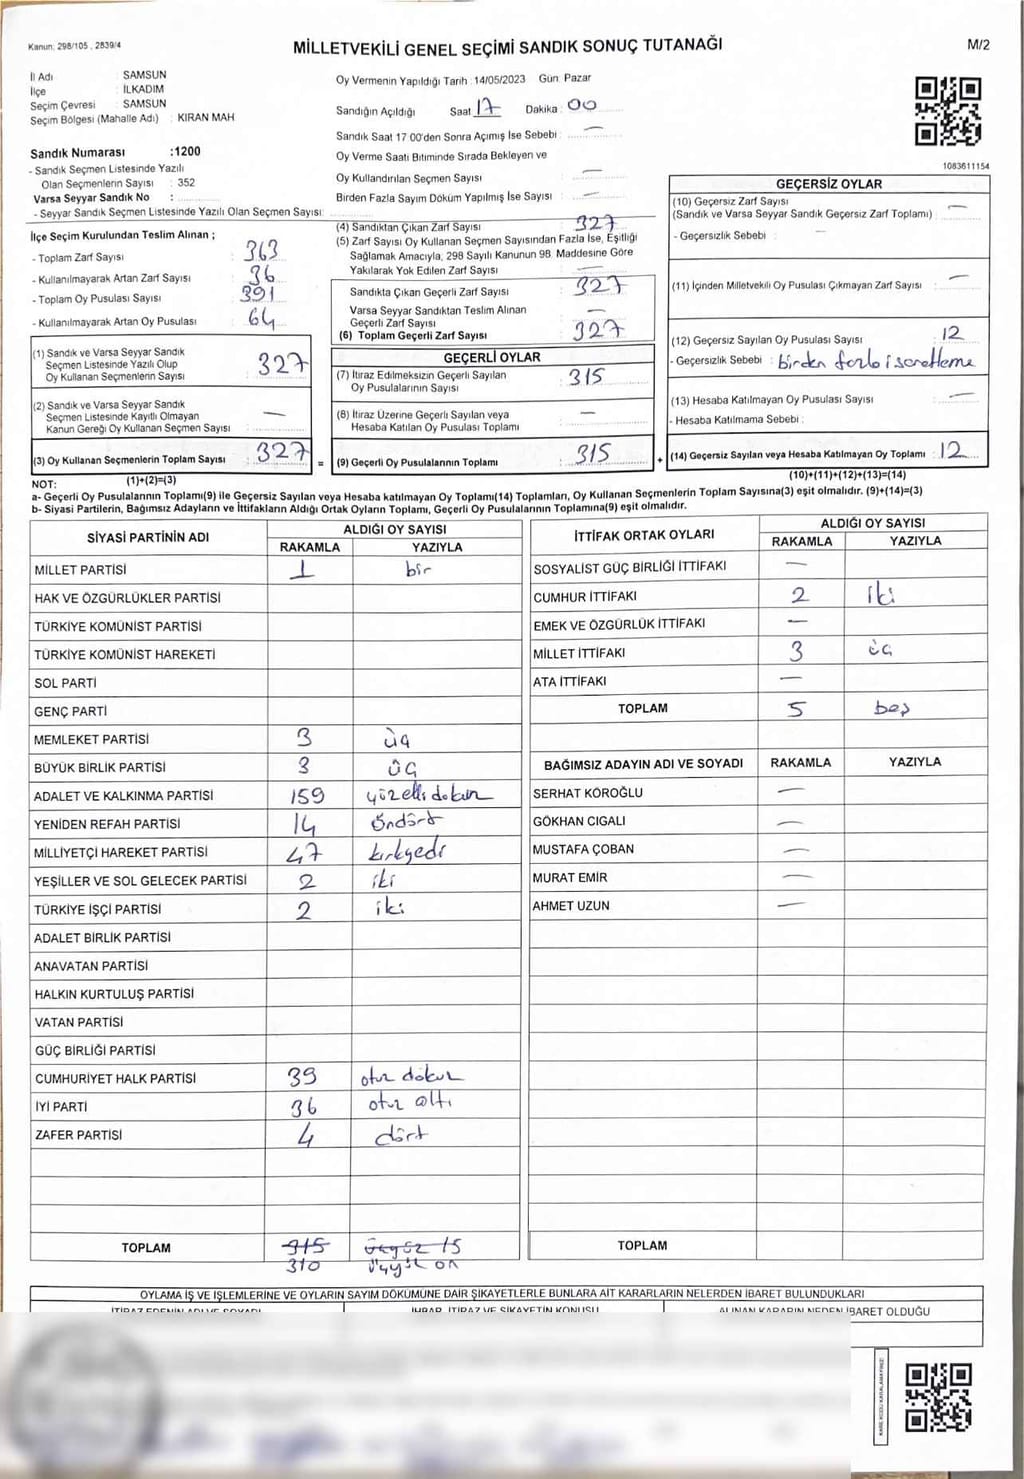 Kanun: 298/105 , 2839/4
MİLLETVEKİLİ GENEL SEÇİMİ SANDIK SONUÇ TUTANAĞI
M/2
İl Adı : SAMSUN
İlçe : İLKADIM
Seçim Çevresi : SAMSUN
Seçim Bölgesi (Mahalle Adı) : KIRAN MAH
Sandık Numarası :1200
- Sandık Seçmen Listesinde Yazılı
Olan Seçmenlerin Sayısı : 352
Varsa Seyyar Sandık No :
- Seyyar Sandık Seçmen Listesinde Yazılı Olan Seçmen Sayısı:
İlçe Seçim Kurulundan Teslim Alınan ;
- Toplam Zarf Sayısı : 363
- Kullanılmayarak Artan Zarf Sayısı : 36
- Toplam Oy Pusulası Sayısı : 391
- Kullanılmayarak Artan Oy Pusulası : 64
(1) Sandık ve Varsa Seyyar Sandık
Seçmen Listesinde Yazılı Olup
Oy Kullanan Seçmenlerin Sayısı : 327
(2) Sandık ve Varsa Seyyar Sandık
Seçmen Listesinde Kayıtlı Olmayan
Kanun Gereği Oy Kullanan Seçmen Sayısı : —
(3) Oy Kullanan Seçmenlerin Toplam Sayısı : 327
(1)+(2)=(3)
Oy Vermenin Yapıldığı Tarih : 14/05/2023 Gün: Pazar
Sandığın Açıldığı Saat : 17 Dakika : 00
Sandık Saat 17 00'den Sonra Açımış İse Sebebi : —
Oy Verme Saati Bitiminde Sırada Bekleyen ve
Oy Kullandırılan Seçmen Sayısı : —
Birden Fazla Sayım Döküm Yapılmış İse Sayısı : —
(4) Sandıktan Çıkan Zarf Sayısı : 327
(5) Zarf Sayısı Oy Kullanan Seçmen Sayısından Fazla İse, Eşitliği
Sağlamak Amacıyla, 298 Sayılı Kanunun 98. Maddesine Göre
Yakılarak Yok Edilen Zarf Sayısı : —
Sandıkta Çıkan Geçerli Zarf Sayısı : 327
Varsa Seyyar Sandıktan Teslim Alınan
Geçerli Zarf Sayısı : —
(6) Toplam Geçerli Zarf Sayısı : 327
GEÇERLİ OYLAR
(7) İtiraz Edilmeksizin Geçerli Sayılan
Oy Pusulalarının Sayısı : 315
(8) İtiraz Üzerine Geçerli Sayılan veya
Hesaba Katılan Oy Pusulası Toplamı : —
= (9) Geçerli Oy Pusulalarının Toplamı : 315
1083611154
GEÇERSİZ OYLAR
(10) Geçersiz Zarf Sayısı
(Sandık ve Varsa Seyyar Sandık Geçersiz Zarf Toplamı) : —
- Geçersizlik Sebebi : —
(11) İçinden Milletvekili Oy Pusulası Çıkmayan Zarf Sayısı : —
(12) Geçersiz Sayılan Oy Pusulası Sayısı : 12
- Geçersizlik Sebebi : birden fazla işaretleme
(13) Hesaba Katılmayan Oy Pusulası Sayısı : —
- Hesaba Katılmama Sebebi :
+ (14) Geçersiz Sayılan veya Hesaba Katılmayan Oy Toplamı : 12
(10)+(11)+(12)+(13)=(14)
NOT:
a- Geçerli Oy Pusulalarının Toplamı(9) ile Geçersiz Sayılan veya Hesaba katılmayan Oy Toplamı(14) Toplamları, Oy Kullanan Seçmenlerin Toplam Sayısına(3) eşit olmalıdır. (9)+(14)=(3)
b- Siyasi Partilerin, Bağımsız Adayların ve İttifakların Aldığı Ortak Oyların Toplamı, Geçerli Oy Pusulalarının Toplamına(9) eşit olmalıdır.
SİYASİ PARTİNİN ADI ALDIĞI OY SAYISI
RAKAMLA YAZIYLA
MİLLET PARTİSİ 1 bir
HAK VE ÖZGÜRLÜKLER PARTİSİ
TÜRKİYE KOMÜNİST PARTİSİ
TÜRKİYE KOMÜNİST HAREKETİ
SOL PARTİ
GENÇ PARTİ
MEMLEKET PARTİSİ 3 üç
BÜYÜK BİRLİK PARTİSİ 3 üç
ADALET VE KALKINMA PARTİSİ 159 yüzellidokuz
YENİDEN REFAH PARTİSİ 14 öndört
MİLLİYETÇİ HAREKET PARTİSİ 47 kırkyedi
YEŞİLLER VE SOL GELECEK PARTİSİ 2 iki
TÜRKİYE İŞÇİ PARTİSİ 2 iki
ADALET BİRLİK PARTİSİ
ANAVATAN PARTİSİ
HALKIN KURTULUŞ PARTİSİ
VATAN PARTİSİ
GÜÇ BİRLİĞİ PARTİSİ
CUMHURİYET HALK PARTİSİ 39 otuz dokuz
İYİ PARTİ 36 otuz altı
ZAFER PARTİSİ 4 dört
TOPLAM 315 üçyüz 15
310 üçyüz on
İTTİFAK ORTAK OYLARI ALDIĞI OY SAYISI
RAKAMLA YAZIYLA
SOSYALİST GÜÇ BİRLİĞİ İTTİFAKI —
CUMHUR İTTİFAKI 2 iki
EMEK VE ÖZGÜRLÜK İTTİFAKI —
MİLLET İTTİFAKI 3 üç
ATA İTTİFAKI —
TOPLAM 5 beş
BAĞIMSIZ ADAYIN ADI VE SOYADI RAKAMLA YAZIYLA
SERHAT KÖROĞLU —
GÖKHAN CIGALI —
MUSTAFA ÇOBAN —
MURAT EMİR —
AHMET UZUN —
TOPLAM
OYLAMA İŞ VE İŞLEMLERİNE VE OYLARIN SAYIM DÖKÜMÜNE DAİR ŞİKAYETLERLE BUNLARA AİT KARARLARIN NELERDEN İBARET BULUNDUKLARI
İTİRAZ EDENİN ADI VE SOYADI İHBAR, İTİRAZ VE ŞİKAYETİN KONUSU ALINAN KARARIN NEDEN İBARET OLDUĞU